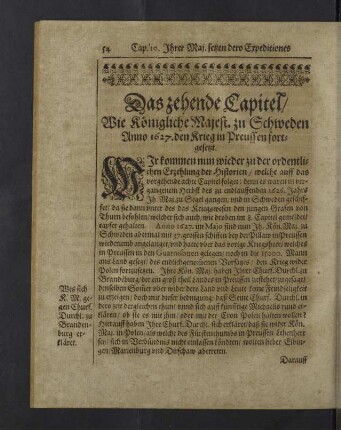 54 Cap. 10. Ihrer Maj. selten dero Expeditiones
Das zehende Capitel/
Wie Königliche Majest. zu Schweden
Anno 1627. den Krieg in Preussen fort-
gesetzt.
WIr kommen nun wieder zu der ordentli-
chen Erzehlung der Historien/ welche auff das
vorgehende achte Capitel folget: denn es waren in ver-
gangenem Herbst des zu endlauffenden 1626. Jahrs
Ih. Maj. zu Segel gangen/ und in Schweden geschif-
fet/ da sie dann unter das Kriegswesen dem jungen Grafen von
Thurn befohlen/ welcher sich auch/ wie droben im 8. Capitel gemeldet
tapfer gehalten. Anno 1627. im Majo sind nun Ih. Kön. Maj. zu
Schweden abermal mit 37. grossen schiffen bey der Pillau in Preussen
wiederumb angelanget/ und hatte über das vorige Kriegsheer/ welches
in Preussen in den Guarnisonen gelegen/ noch in die 8000. Mann
ans land gesetzt/ des endlichen Vorsatzes/ den Krieg wider
Polen fortzusetzen. Ihre Kön. Maj. haben Ihrer Churf. Durchl. zu
Brandenburg
Wes sich
K. M. ge-
gen Churf.
Durchl. zu
Branden-
burg er-
kläret.
zu erzeigen/ doch mit dieser bedingung/ daß Seine Churf. Durchl. in
klären/ ob sie es mit ihm/ oder mit der Cron Polen halten wollen?
Hierauff haben Ihre Churf. Durchl. sich erkläret/ daß sie wider Kön.
Maj. in Polen/ als welche des Fürstenthumbs in Preussen Lehenherr
sey/ sich in Verbündnus nicht einlassen könten/ wolten lieber Elbin-
gen/ Marienburg und Dirschaw abtretten.
Darauff